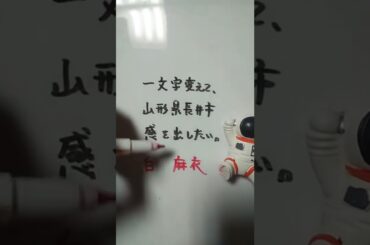 一文字変えて、
山形県長井市
感を出したい。
麻衣